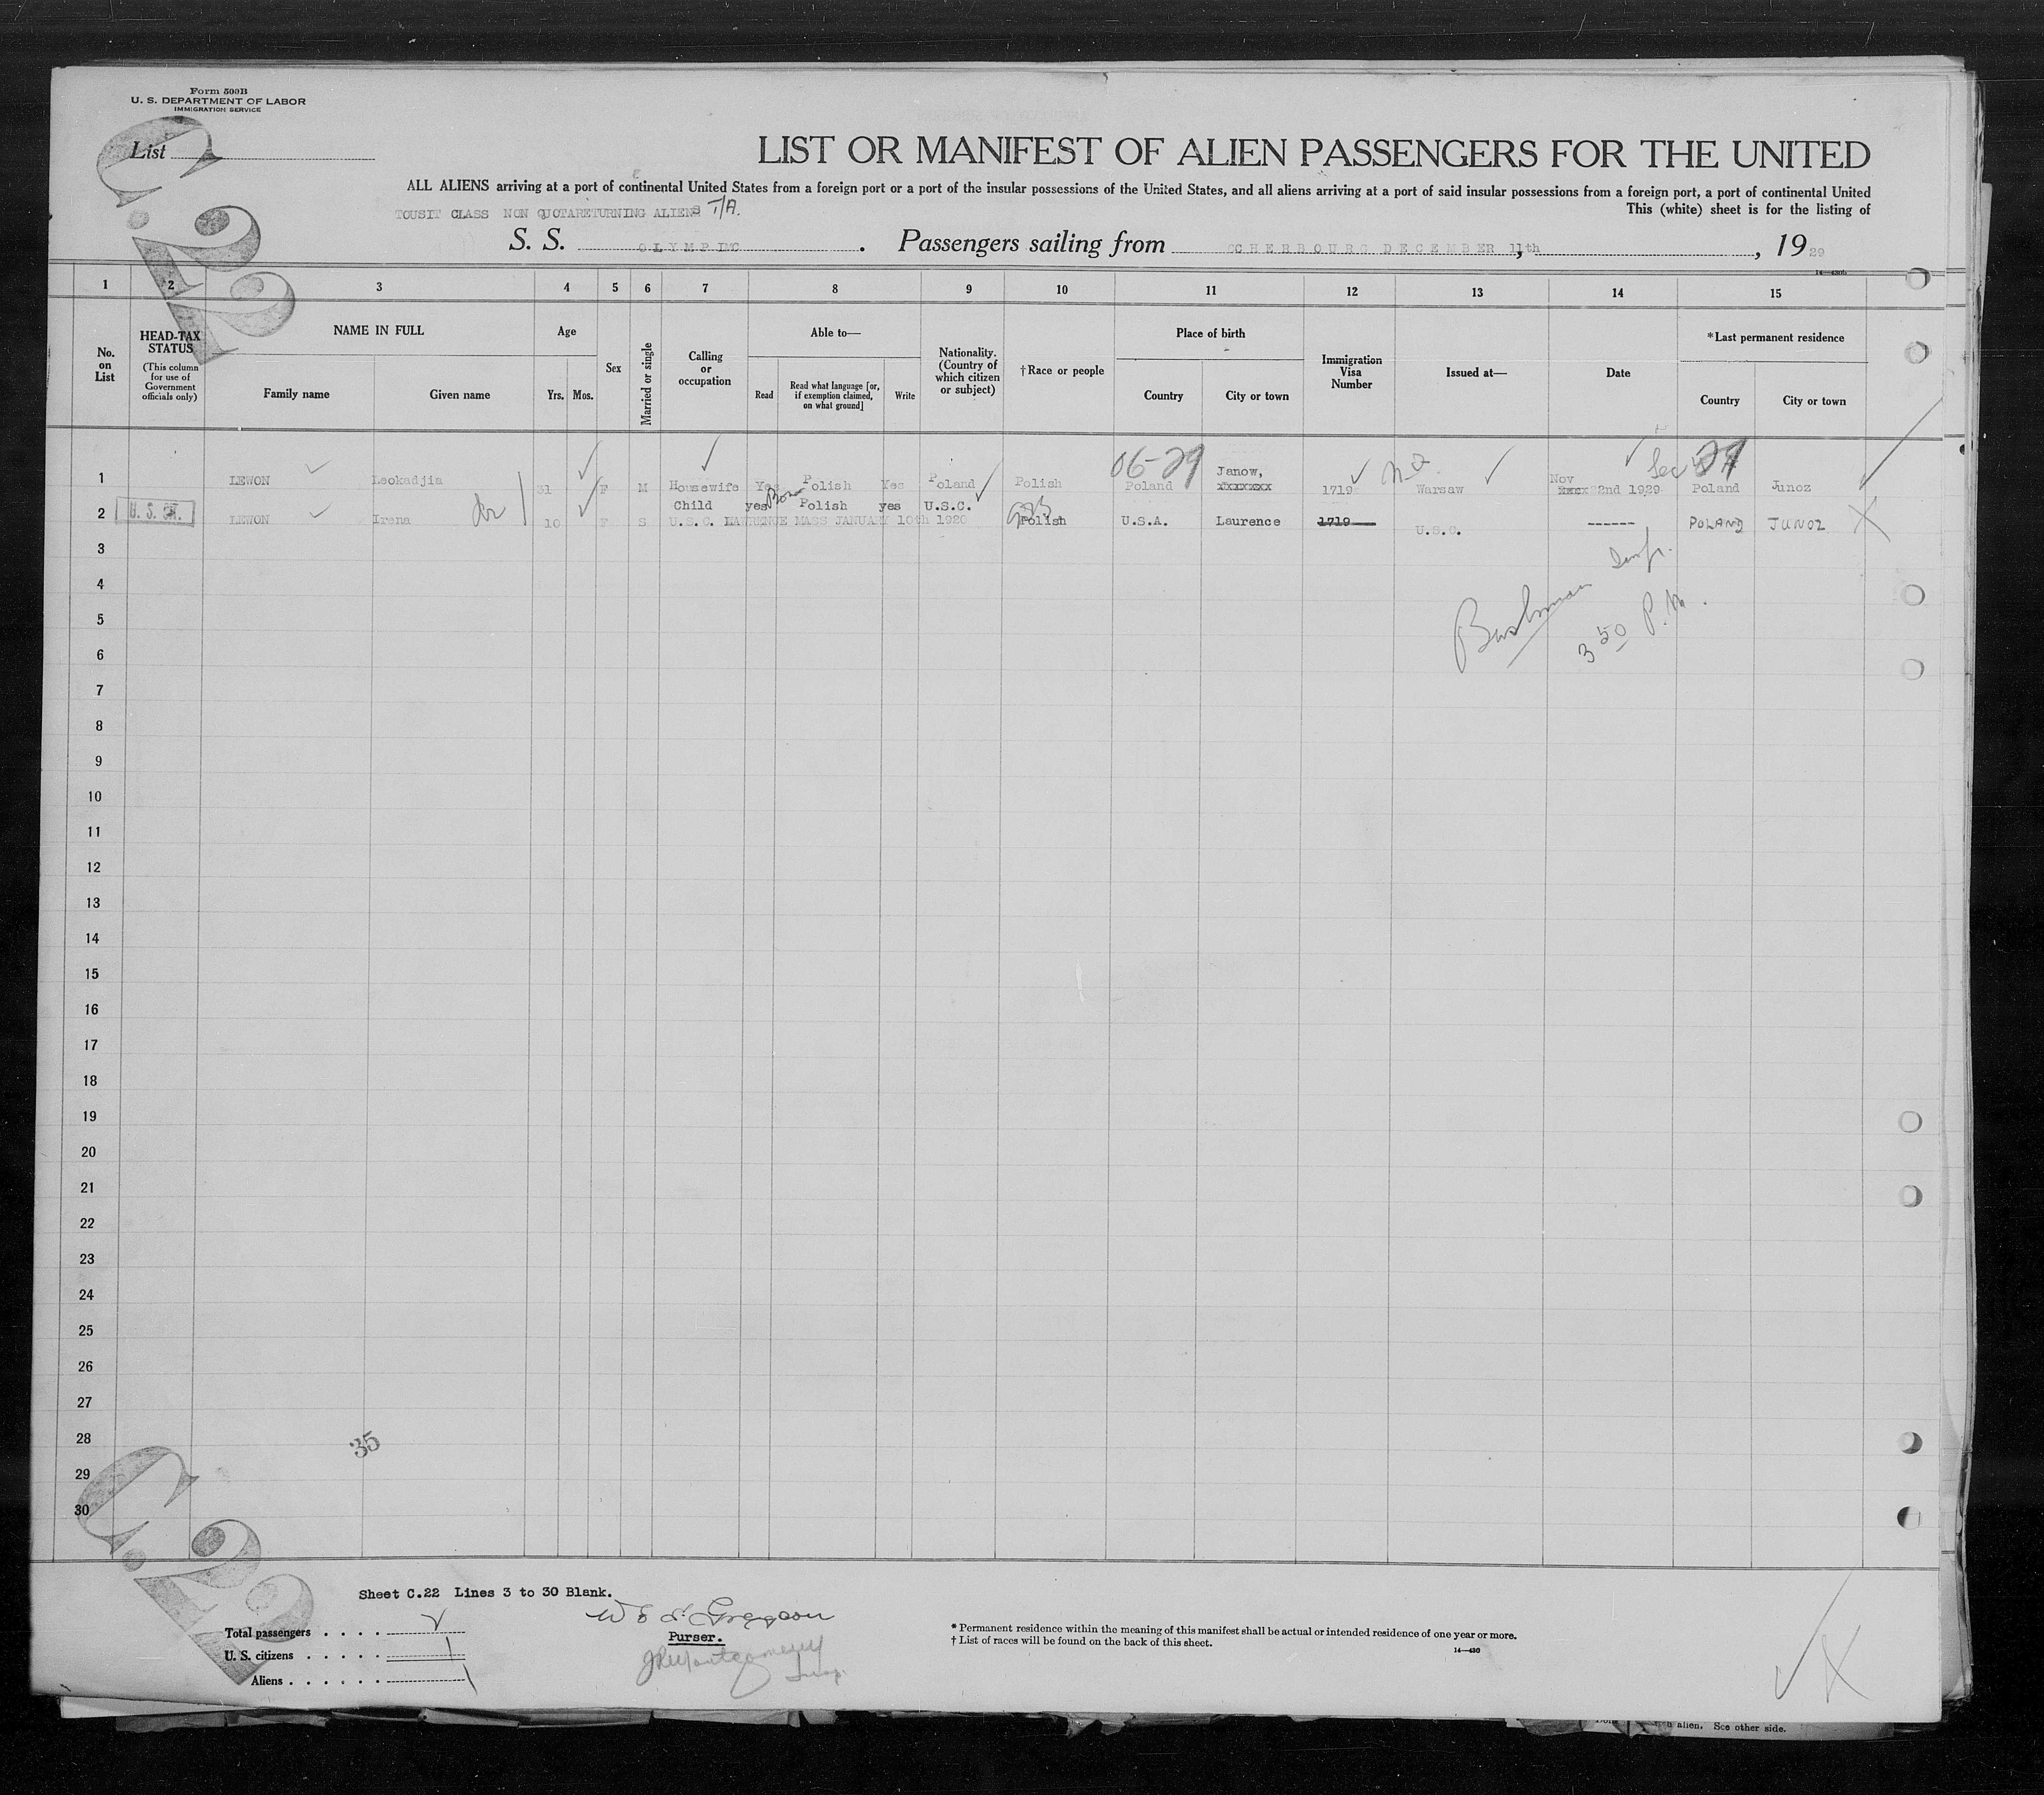 Form 500B
U. S. DEPARTMENT OF LABOR
IMMIGRATION SERVICE
List
C.22
LIST OR MANIFEST OF ALIEN PASSENGERS FOR THE UNITED
ALL ALIENS arriving at a port of continental United States from a foreign port or a port of the insular possessions of the United States, and all aliens arriving at a port of said insular possessions from a foreign port, a port of continental United
TOUSIT CLASS NON QUOTARETURNING ALIENS T/A.
This (white) sheet is for the listing of
S. S. OLYMPIC. Passengers sailing from CCHERBOURG DECEMBER 11th, 1929
14—430b
1 2 3 4 5 6 7 8 9 10 11 12 13 14 15
No. on List
HEAD-TAX STATUS
(This column for use of Government officials only)
NAME IN FULL
Family name Given name
Age
Yrs. Mos.
Sex
Married or single
Calling or occupation
Able to—
Read Read what language [or, if exemption claimed, on what ground] Write
Nationality. (Country of which citizen or subject)
†Race or people
Place of birth
Country City or town
Immigration Visa Number
Issued at—
Date
*Last permanent residence
Country City or town
06-29
1 LEWON Leokadjia 31 F M Housewife Yes Polish Yes Poland Polish Poland Janow, xxxxxxxx 1719 Warsaw Nov 22nd 1929 Poland Junoz
2 LEWON Irena 10 F S Child yes Polish yes U.S.C. Polish U.S.A. Laurence 1719 U.S.C. ------ POLAND JUNOZ
Born
U.S.C. LAWRENCE MASS JANUARY 10th 1920
3
4
5
6
7
8
9
10
11
12
13
14
15
16
17
18
19
20
21
22
23
24
25
26
27
28
29
30
Bushman Insp.
3 50 P.M.
35
C.22
Sheet C.22 Lines 3 to 30 Blank.
Total passengers . . . . 2
U. S. citizens . . . . . 1
Aliens . . . . . . 1
Purser.
JRMontgomery
Insp.
* Permanent residence within the meaning of this manifest shall be actual or intended residence of one year or more.
† List of races will be found on the back of this sheet.
14—430
alien. See other side.